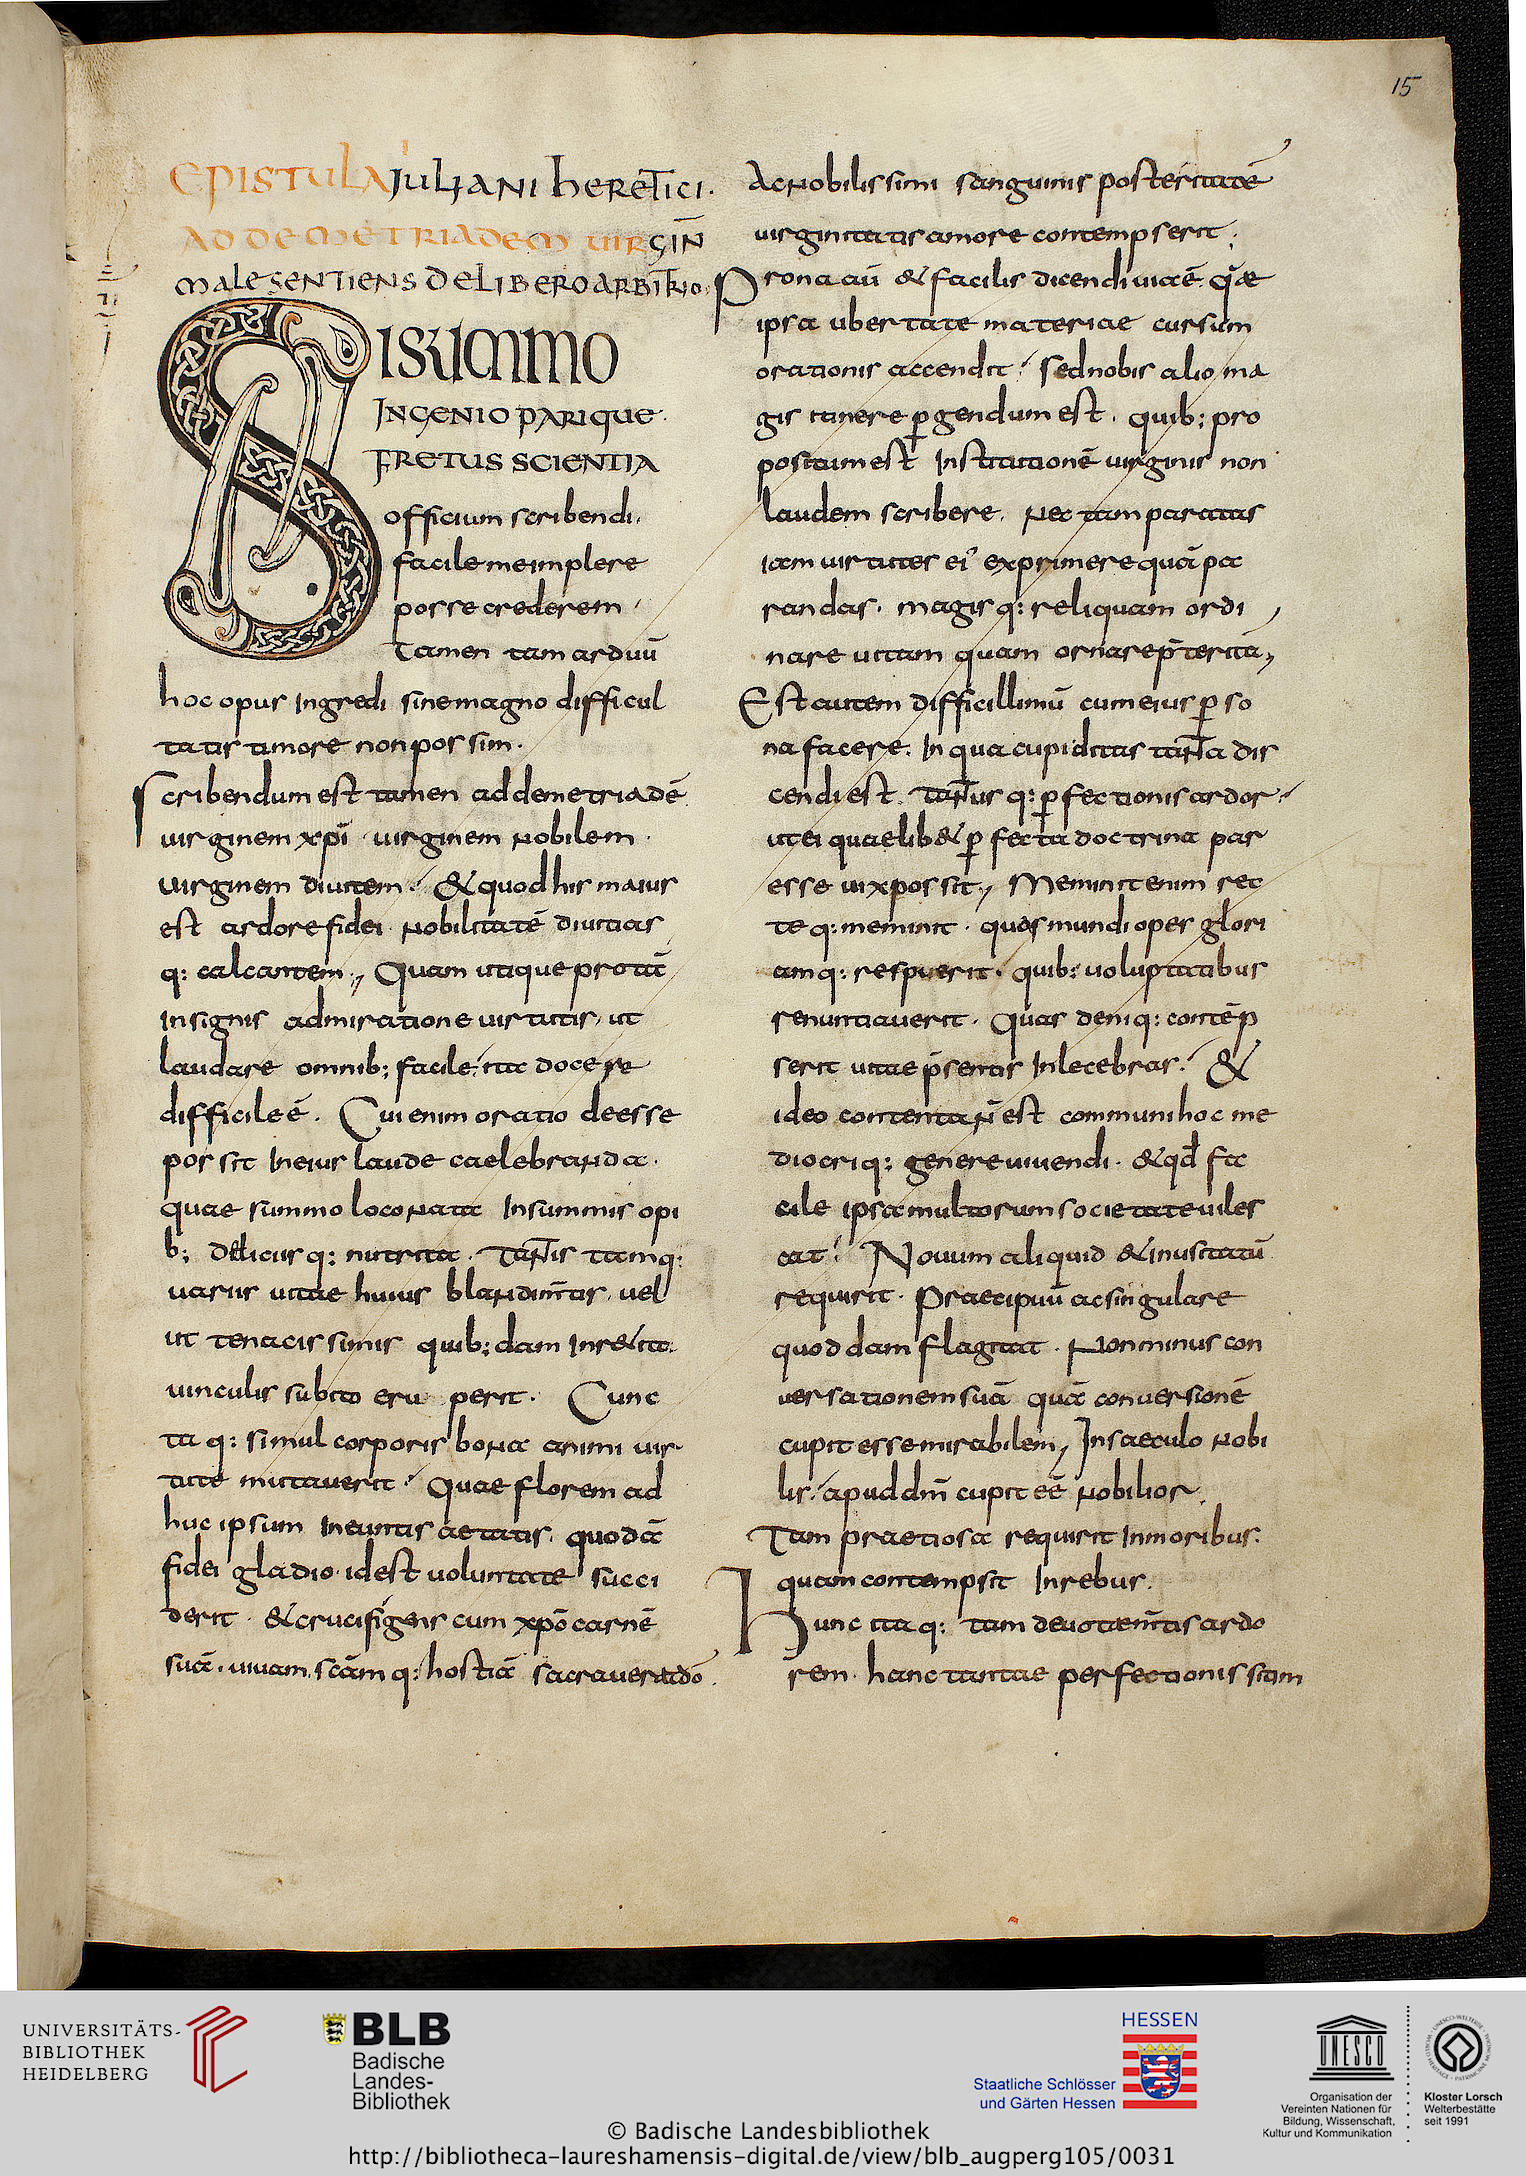 15
EPISTULA JULIANI hERETICI.
AD DEMETRIADEM UIRGIN̄
MALE SENTIENS DE LIBERO ARBITRIO.
SISUMMO
INGENIO PARIQUE.
FRETUS SCIENTIA
officium scribendi,
facile me implere
posse crederem,
Tamen tam arduū
hoc opus Ingredi sine magno difficul
tatis timore non possim.
Scribendum est tamen ad demetriadē
uirginem xp̄i. uirginem Nobilem.
uirginem diuitem. & quod his maius
est ardore fidei Nobilitatē diuitias
q: calcantem., Quam utique pro tā
Insignis admiratione uirtutis, ut
laudare omnib; facile, ita docere
difficile ē. Cui enim oratio deesse
possit In eius laude caelebranda.
quae summo loco Nata Insummis opi
b; deliciisq: nutrita. Tantis tamq:
uariis uitae huius blandimtis, uel
ut tenacissimis quib;dam Inr&ita.
uinculis subito eru perit. Cunc
taq: simul corporis bona animi uir
tute mutauerit. Quae florem ad
huc ipsum Ineuntis aetatis, quodā
fidei gladio. id est uoluntate succi
derit. & crucifigens cum xp̄o carnē
suā. uiuam, scām q: hostiā sacrauerit dō.
Ac Nobilissimi sanguinis posteritatē
uirginitatis amore contempserit;
Prona aū & facilis dicendi uia ē. quae
ipsa ubertate materiae cursum
orationis accendit. Sed nobis alio ma
gis itinere p̱gendum est. quib; pro
positum est Institutionē uirginis non
laudem scribere. Nec tam paratas
iam uirtutes ei' exprimere quā pa
randas. magisq: reliquam ordi
nare uitam quam ornare p̄teritā,
Est autem difficillimū cum eius p̱so
na facere. In qua cupiditas tanta dis
cendi est. Tantus q: p̱fectionis ardor.
ut ei quaelib& p̱fecta doctrina par
esse uix possit., Meminit enim rec
te q: meminit. quas mundi opes glori
amq: respuerit. quib; uoluptatibus
renuntiauerit. Quas deniq: contēp
serit uitae p̄sentis Inlecebras. &
ideo contenta ñ est communi hoc me
diocriq: genere uiuendi. & qđ fa
cile ipsa multorum societate uiles
cat. Nouum aliquid & inusitatū
requirit. Praecipuū ac singulare
quoddam flagitat. Non minus con
uersationem suā quā conuersionē
cupit esse mirabilem, In saeculo Nobi
lis. apud dn̄m cupit eē Nobilior.
Tam praetiosa requirit In moribus.
quam contempsit In rebus.
Hunc itaq: tam deuotae mtis ardo
rem. hanc tantae perfectionis sitim
UNIVERSITÄTS-
BIBLIOTHEK
HEIDELBERG
BLB
Badische
Landes-
Bibliothek
HESSEN
Staatliche Schlösser
und Gärten Hessen
UNESCO
Organisation der
Vereinten Nationen für
Bildung, Wissenschaft,
Kultur und Kommunikation
Kloster Lorsch
Welterbestätte
seit 1991
© Badische Landesbibliothek
http://bibliotheca-laureshamensis-digital.de/view/blb_augperg105/0031